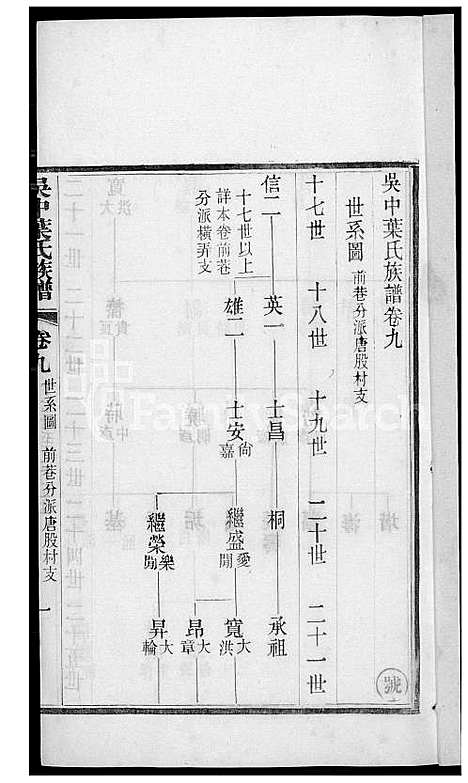 吳中葉氏族譜卷九
世系圖 前巷分派唐股村支
十七世 十八世 十九世 二十世 二十一世
信二 英一 士昌 桐 承祖
十七世以上
詳本卷前巷
分派橫弄支
雄二 士安 尙嘉 繼盛 愛閒 寬 大洪
昂 大章
繼榮 樂閒 昇 大輪
吳中葉氏族譜 卷九 世系圖 前巷分派唐股村支 一
號
FamilySearch